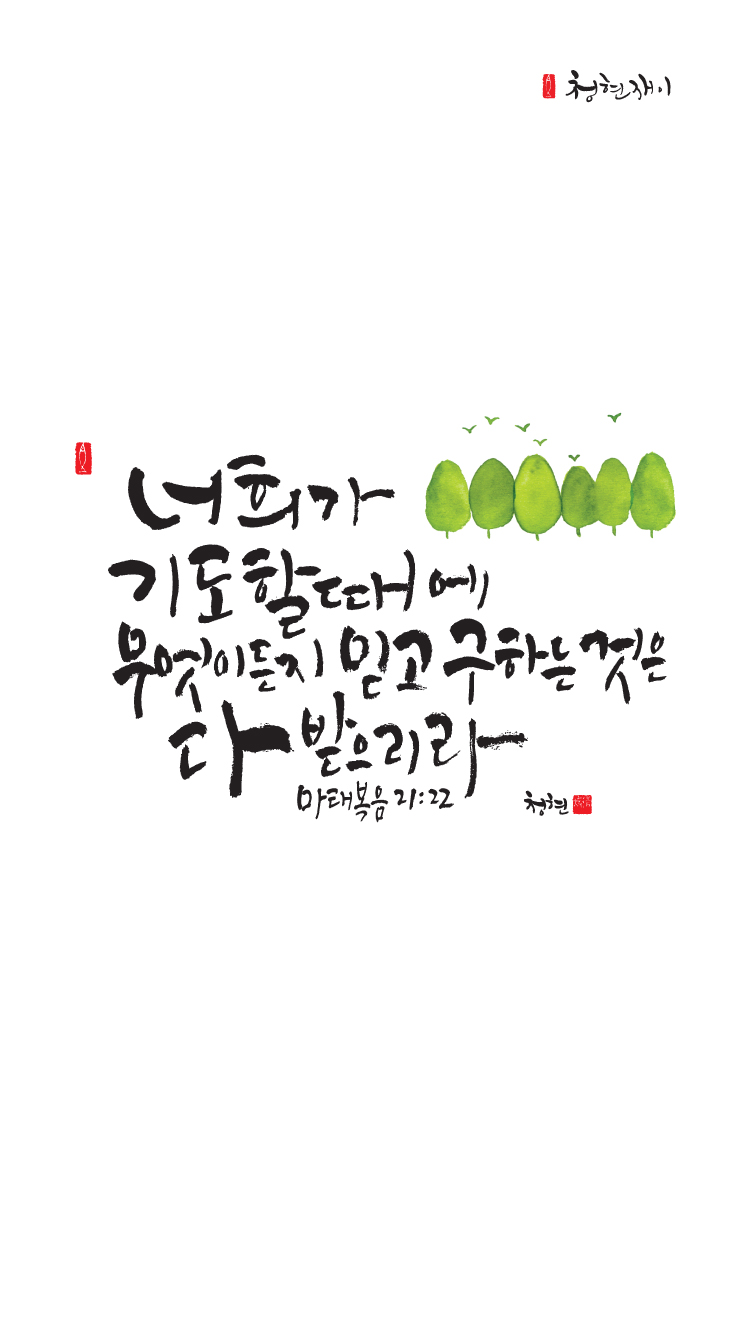 청현재이
너희가
기도할때에
무엇이든지 믿고 구하는 것은
다 받으리라
마태복음 21:22
청현